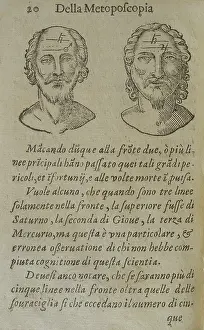 20 Della Metoposcopia
Mãcando dũque alla frõte due, ò più li-
nee prĩcipali hãno passato quei tali grãdi pe-
ricoli, et ĩfortunij, e alle volte morte ĩpẽsata.
Vuole alcuno, che quando sono tre linee
solamente nella fronte, la superiore fusse di
Saturno, la seconda di Gioue, la terza di
Mercurio, ma questa è vna particolare, &
erronea obseruatione di chi non hebbe com-
piuta cognitione di questa scientia.
Deuesi anco notare, che se sarãno più di
cinque linee nella fronte oltra quelle delle
souraciglia si che eccedano il numero di cin-
que